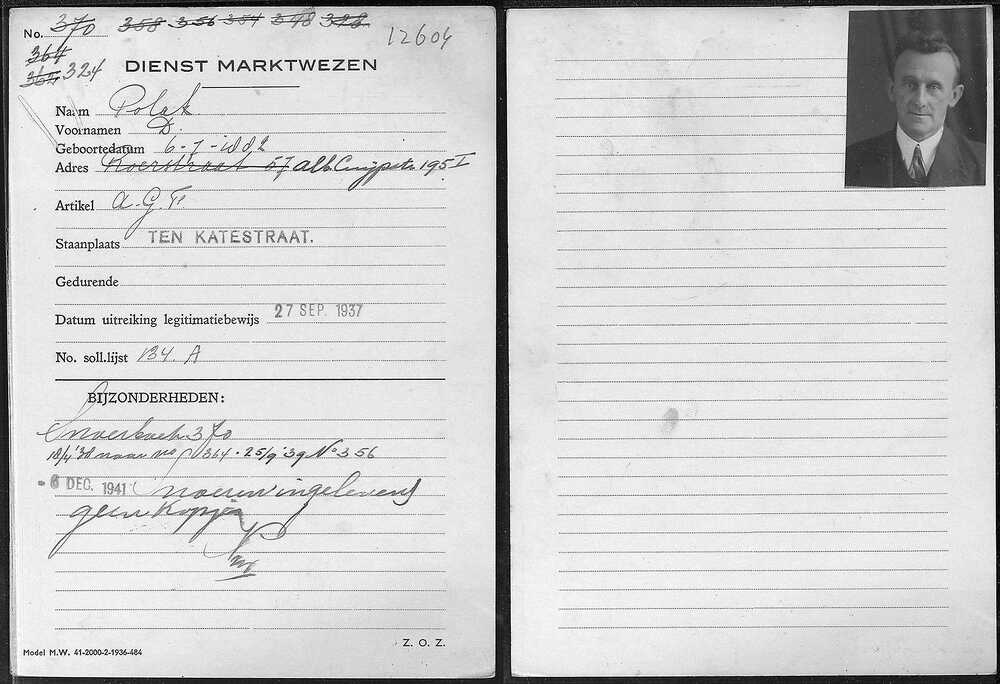 No. 370 358 356 351 348 328 12604
364
360 324
DIENST MARKTWEZEN
Naam Polak.
Voornamen D.
Geboortedatum 6-7-1882
Adres Roerstraat 67 Alb. Cuypstr. 195 I
Artikel A.G.F.
Staanplaats TEN KATESTRAAT.
Gedurende
Datum uitreiking legitimatiebewijs 27 SEP. 1937
No. soll.lijst 134. A
BIJZONDERHEDEN:
370
naar no 364 - 25/9 '39 No 356
- 6 DEC. 1941 ingeleverd
geen kopje
Model M.W. 41-2000-2-1936-484
Z. O. Z.